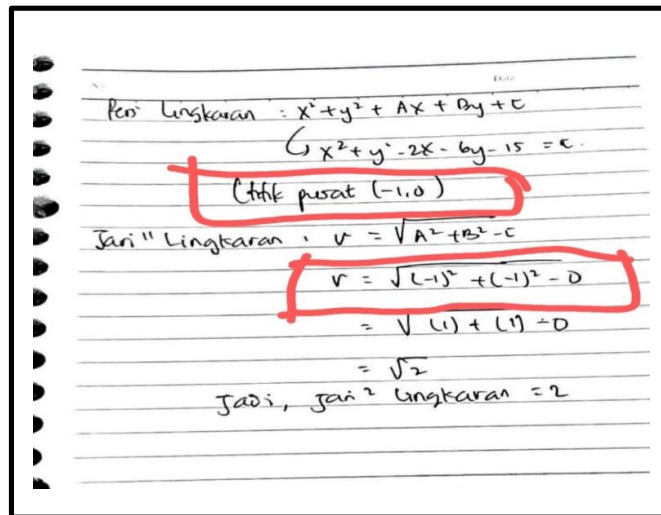 Pers Lingkaran : x² + y² + Ax + By + C
x² + y² - 2x - 6y - 15 = c.
(titik pusat (-1,0)
Jari" Lingkaran : r = √A² + B² - C
r = √(-1)² + (-1)² - 0
= √(1) + (1) - 0
= √2
Jadi, jari² lingkaran = 2